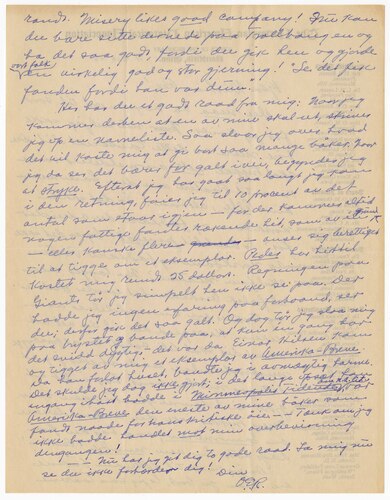 rands. Misery likes good company! Nu kan
du bare sitte dernede paa Kallbangen og
ha det saa godt, fordi du gik hen og gjorde
en virkelig god og stor gjerning! "Se det fik
vort folk
fanden fordi han var dum.
Her har du et godt raad fra mig: Naar jeg
kommer derhen at en av mine skal ut, skriver
jeg op en navneliste. Saa slaar jeg over hvad
det vil koste mig at gi bort saa mange bøker. Naar
jeg da ser det bærer for galt ivei, begynder jeg
at stryke. Efterat jeg har gaat saa langt jeg kan
i den retning, føier jeg til 10 procent av det
antal som staar igjen — for der kommer altid
nogen fattige fanter rækende hit, som av
— eller kanske flere — anser sig berettiget
til at tigge om et eksemplar. Pedes har hittil
kostet mig rundt 25 dollars. Regningen paa
Giants tør jeg simpelt hen ikke se paa. Der
hadde jeg ingen erfaring paa forhaand, ser
du; derfor gik det saa galt. Og dog tør jeg slaa mig
paa brystet og bande paa, at kun en gang har
det svidd dygtig — det var da Einar Hilsen kom
og tigget av mig et eksemplar av Amerika-Breve.
Da han forlot huset, bandte jeg i avmægtig harme.
Det skulde jeg dog ikke gjort; i det lange
ingen hadde i Minneapolis Tidende
Amerika-Breve den eneste av mine bøker som
fandt naade for hans kritiske øie. — Tænk om jeg
ikke hadde handlet mot min overbevisning
dengangen!
— — Nu har jeg git dig to gode raad. La mig nu
se du ikke forhærder dig! Din
OER.